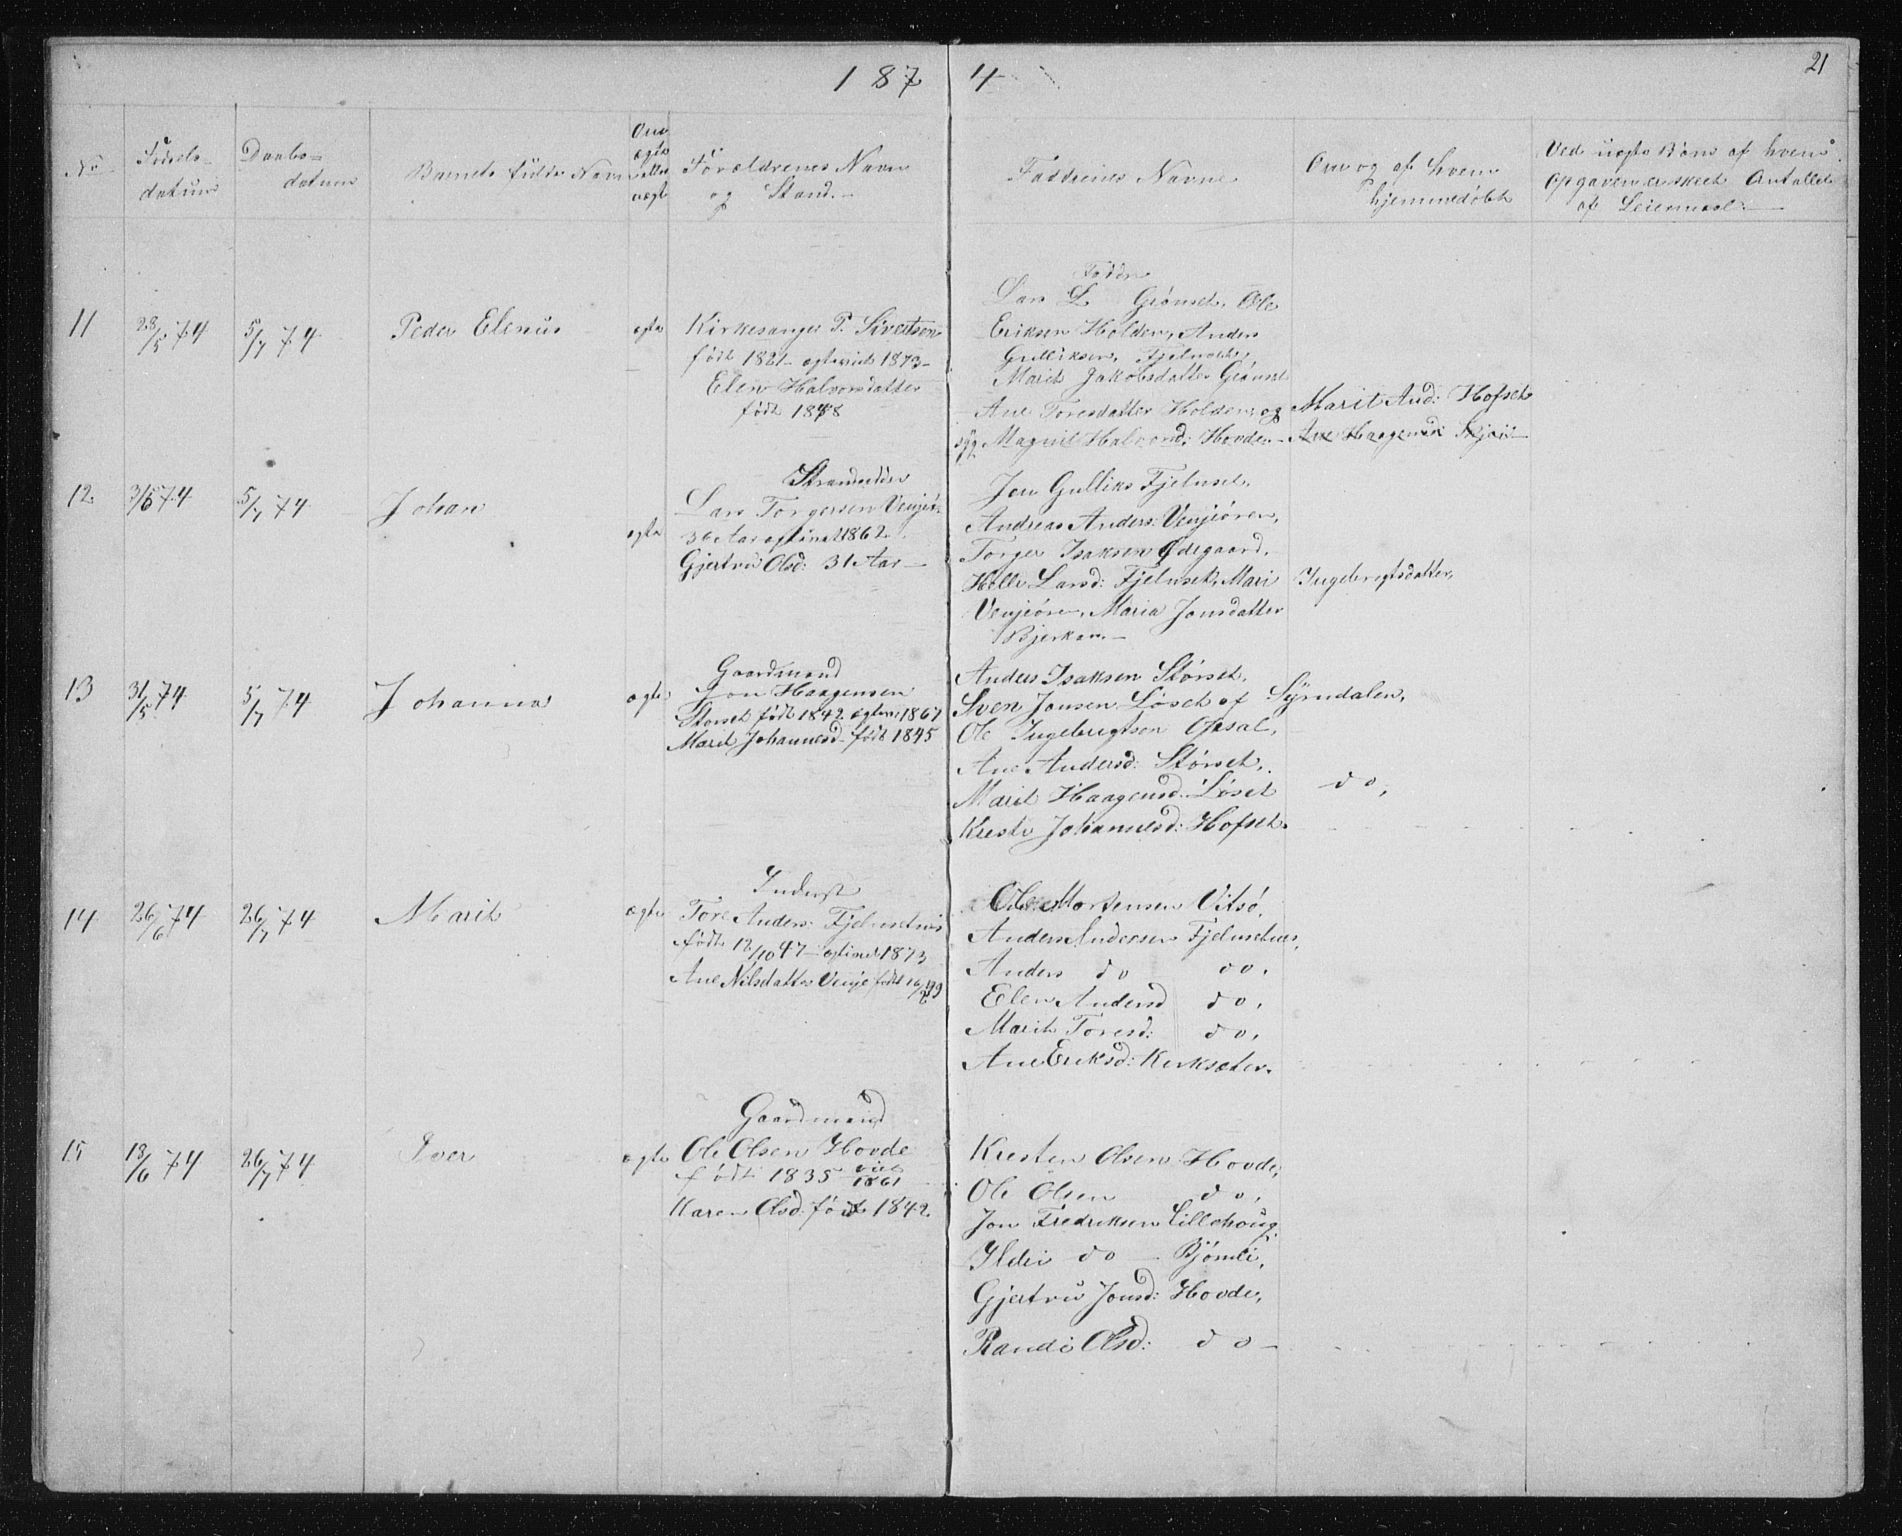 1874
21
No
Fødsels-
datum
Daabs-
datum
Barnets fulde Navn
Om
ægte
eller
uægte
Forældrenes Navn
og Stand.
Faddrenes Navne
Om og af hvem
hjemmedøbt
Ved uægte Børn af hvem
Opgaven er skeet Antallet
af Leiermaal.
11
28/5 74
5/7 74
Peder Elenus
ægte
Kirkesanger P. Sivertsen
født 1821 - egteviet 1873 -
Elen Halvorsdatter
født 1848
Lars L Grønset, Ole
Eriksen Holden, Anders
Gulliksen, Fjelnset,
Marit Jakobsdatter Grønset
Ane Toresdatter Holden, og
Magnil Halvord: Hovde -
Marit And: Hofset
Ane Haagensd:
12.
31/5 74
5/7 74
Johan
ægte
Strandsidder
Lars Torgersen Venjeør
36 Aar egteviet 1862.
Gjertru Olsd: 31 Aar -
Jon Gulliks Fjelnset.
Andreas Anders: Venjeøren,
Torger Isaksen Ødegaard.
Larsd: Fjelnset, Mari Ingebrigtsdatter,
Venjeøren, Maria Jonsdatter
Bjerkan. -
13
31/5 74
5/7 74
Johanna
ægte
Gaardmand
Jon Haagensen
Størset født 1842 egtev: 1867
Marit Johannesd. født 1845
Anders Isaksen Størset,
Sven Jonsen Løset af Surndalen,
Ole Ingebrigtsen Opsal,
Ane Andersd: Størset,
Marit Haagensd: Løset do,
Kirsti Johannesd: Hofset.
14
26/6 74
26/7 74
Marit
ægte
Inderst
Tore Anders: Fjelnsetnes
født 12/10 47 - egteviet 1873
Ane Nilsdatter Venje født
Ole Mortensen Vitsø,
Anders Andersen Fjelnsetnes,
Anders do do.
Elen Andersd do.
Marit Toresd: do,
Ane Eriksd: Kirksæter.
15
18/6 74
26/7 74
Iver
ægte
Gaardmand
Ole Olsen Hovde
født 1835 viet 1861
Karen Olsd: født 1842.
Kristen Olsen Hovde,
Ole Olsen do,
Jon Fredriksen Lillehoug,
Ildri do - Bjørnli,
Gjertru Jonsd: Hovde,
Randi Olsd: do -